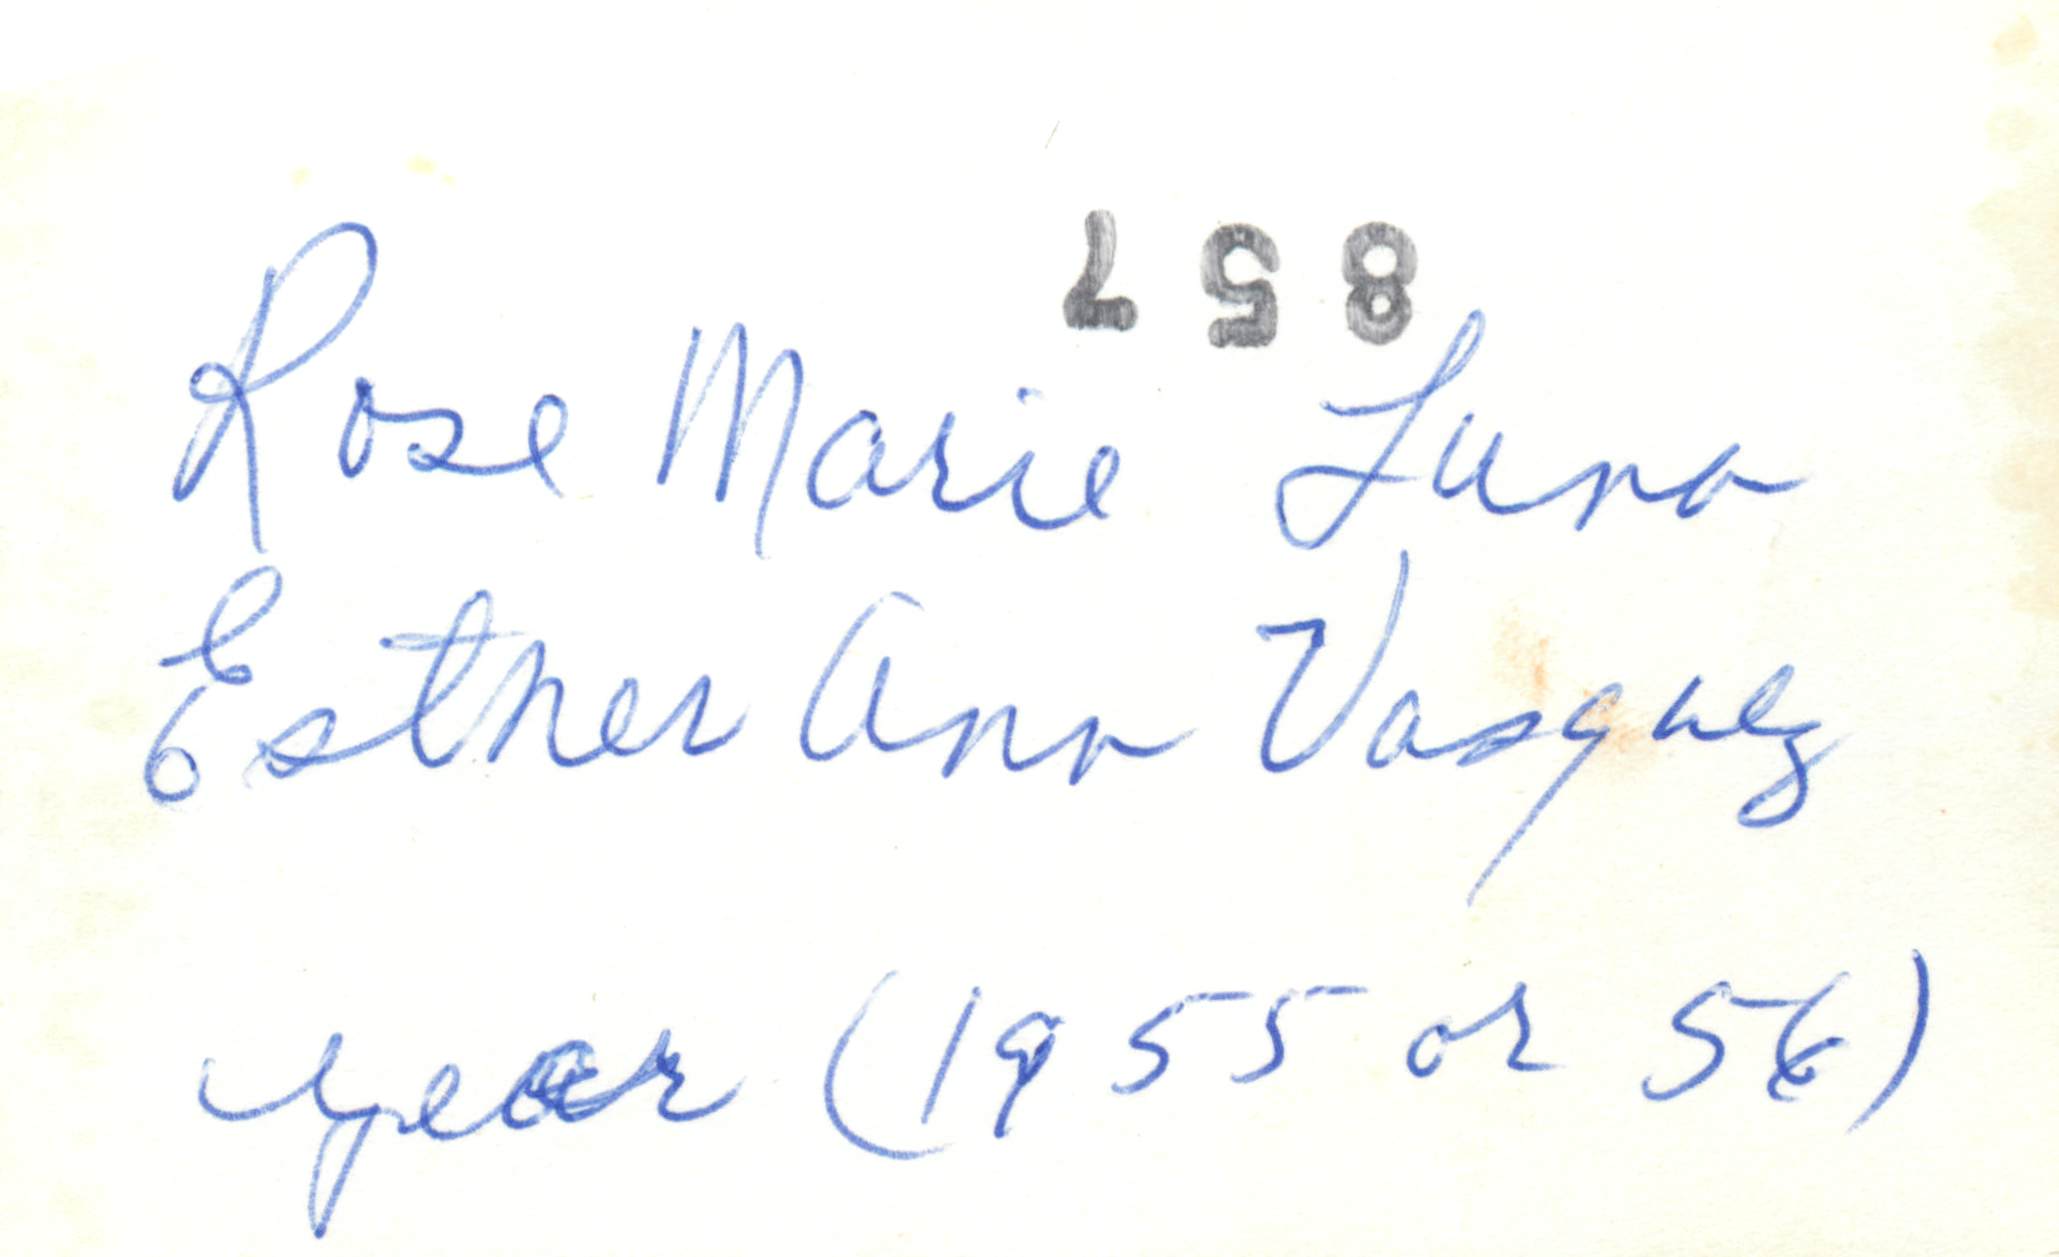 857
Rose Marie Luna
Esther Ann Vasquez
year (1955 or 56)